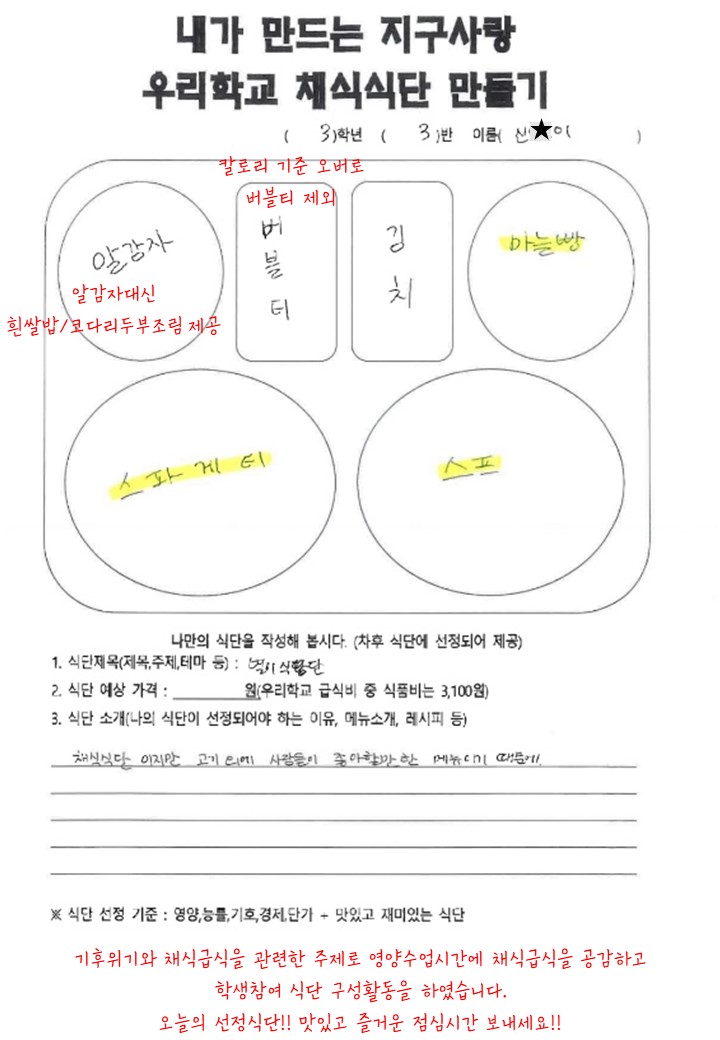 내가 만드는 지구사랑
우리학교 채식식단 만들기
( 3)학년 ( 3)반 이름( 신★이 )
칼로리 기준 오버로
버블티 제외
알감자
버블티
김치
마늘빵
알감자대신
흰쌀밥/코다리두부조림 제공
스파게티
스프
나만의 식단을 작성해 봅시다. (차후 식단에 선정되어 제공)
1. 식단제목(제목,주제,테마 등) :
2. 식단 예상 가격 : ________원(우리학교 급식비 중 식품비는 3,100원)
3. 식단 소개(나의 식단이 선정되어야 하는 이유, 메뉴소개, 레시피 등)
채식식단 이지만 고기 외에 사람들이 좋아할만한 메뉴이기 때문에.
※ 식단 선정 기준 : 영양,능률,기호,경제,단가 + 맛있고 재미있는 식단
기후위기와 채식급식을 관련한 주제로 영양수업시간에 채식급식을 공감하고
학생참여 식단 구성활동을 하였습니다.
오늘의 선정식단!! 맛있고 즐거운 점심시간 보내세요!!